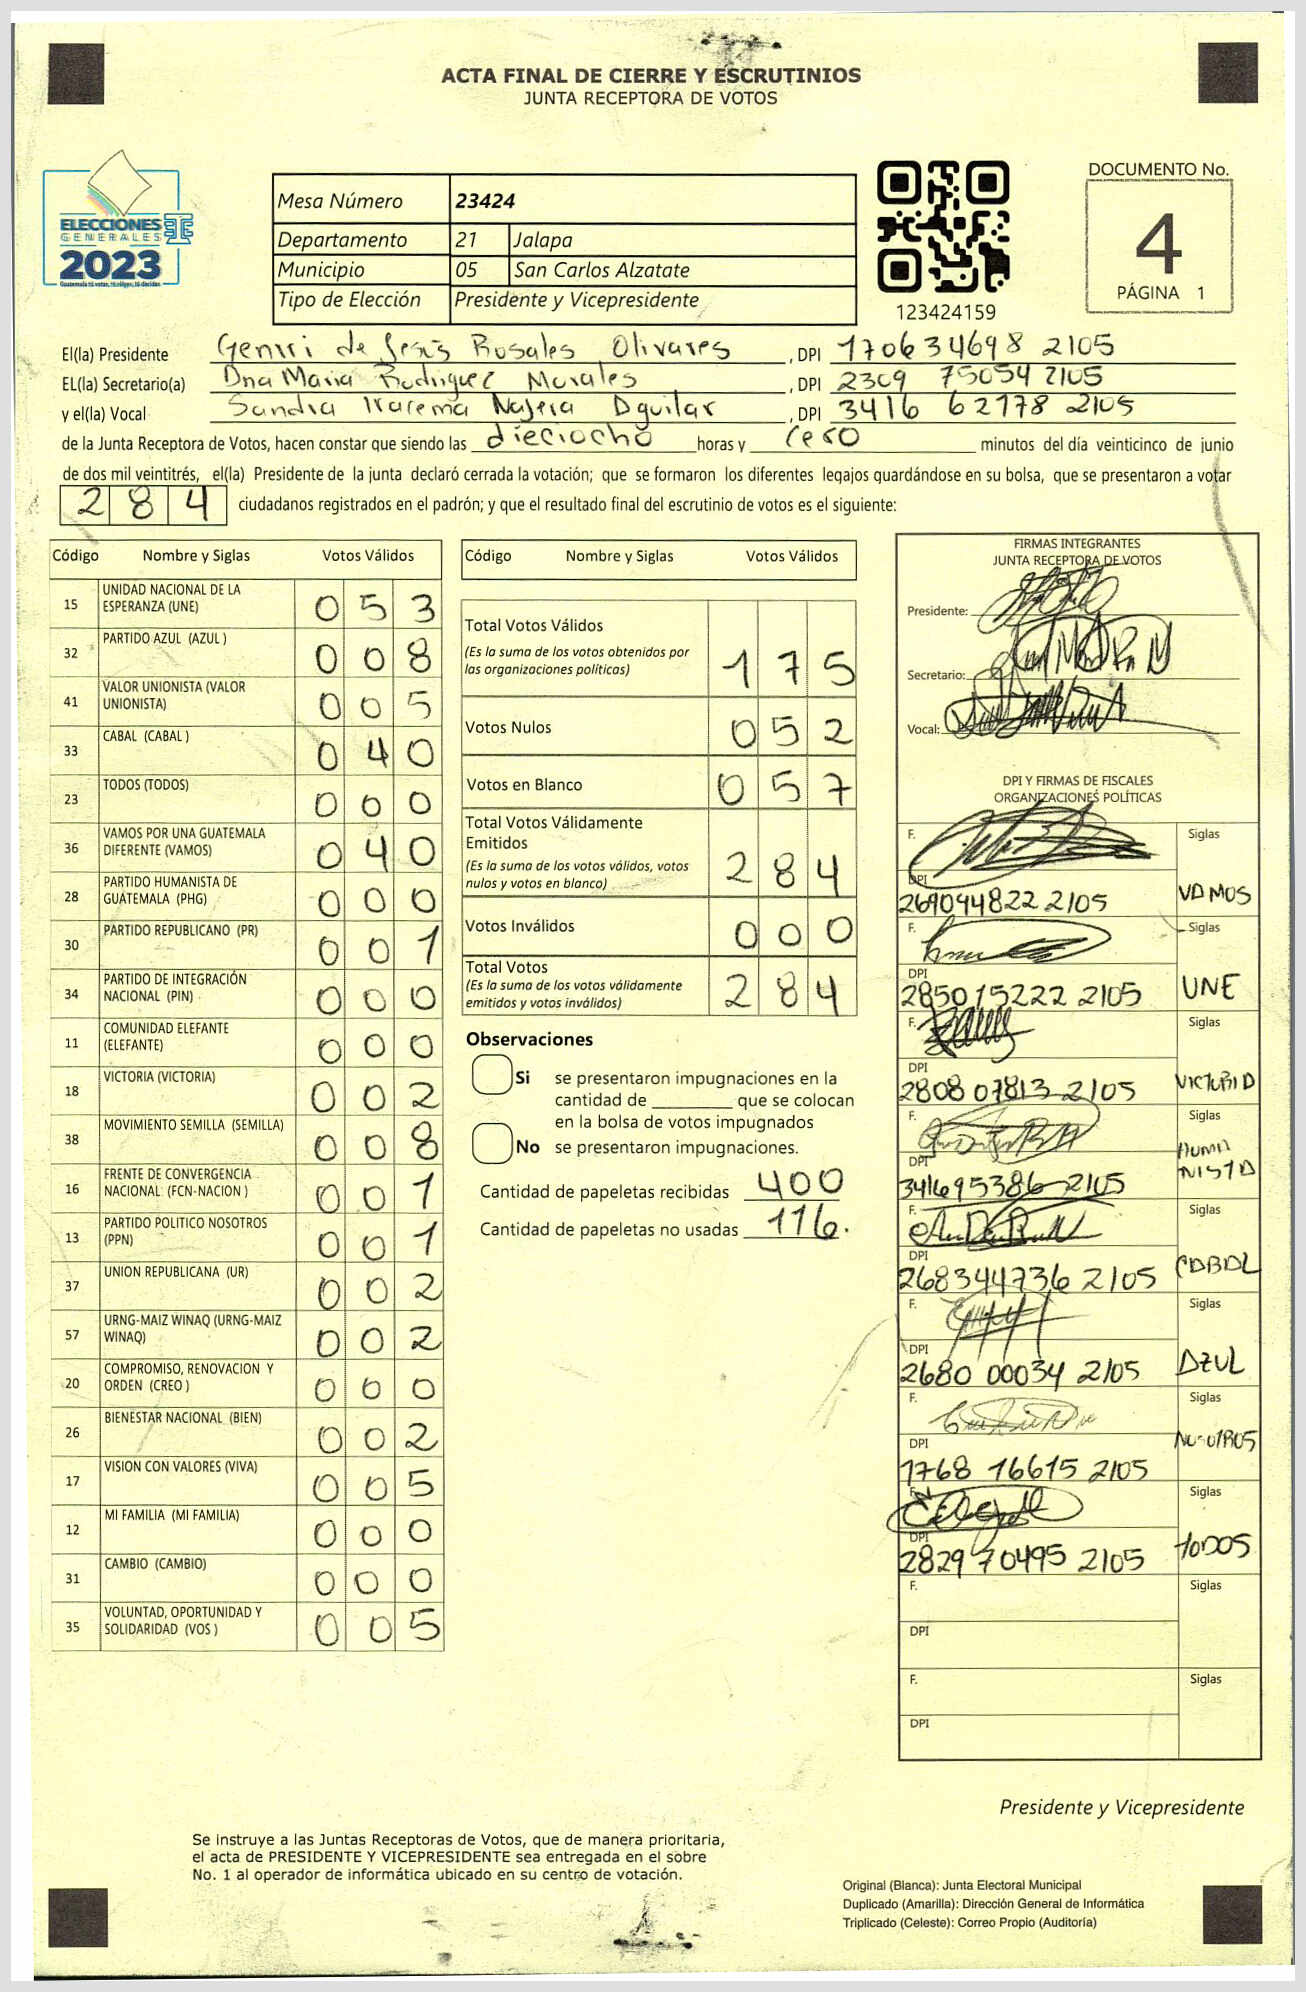 ACTA FINAL DE CIERRE Y ESCRUTINIOS
JUNTA RECEPTORA DE VOTOS
ELECCIONES
GENERALES
2023
Guatemala tú votas, tú eliges, tú decides
Mesa Número 23424
Departamento 21 Jalapa
Municipio 05 San Carlos Alzatate
Tipo de Elección Presidente y Vicepresidente
123424159
DOCUMENTO No.
4
PÁGINA 1
El(la) Presidente Genrri de Jesús Rosales Olivares , DPI 170634698 2105
EL(la) Secretario(a) Ana Maria Rodriguez Morales , DPI 2309 75054 2105
y el(la) Vocal Sandra Irarema Najera Aguilar , DPI 3416 62178 2105
de la Junta Receptora de Votos, hacen constar que siendo las dieciocho horas y cero minutos del día veinticinco de junio
de dos mil veintitrés, el(la) Presidente de la junta declaró cerrada la votación; que se formaron los diferentes legajos guardándose en su bolsa, que se presentaron a votar
284 ciudadanos registrados en el padrón; y que el resultado final del escrutinio de votos es el siguiente:
Código Nombre y Siglas Votos Válidos
15 UNIDAD NACIONAL DE LA ESPERANZA (UNE) 053
32 PARTIDO AZUL (AZUL ) 008
41 VALOR UNIONISTA (VALOR UNIONISTA) 005
33 CABAL (CABAL ) 040
23 TODOS (TODOS) 000
36 VAMOS POR UNA GUATEMALA DIFERENTE (VAMOS) 040
28 PARTIDO HUMANISTA DE GUATEMALA (PHG) 000
30 PARTIDO REPUBLICANO (PR) 001
34 PARTIDO DE INTEGRACIÓN NACIONAL (PIN) 000
11 COMUNIDAD ELEFANTE (ELEFANTE) 000
18 VICTORIA (VICTORIA) 002
38 MOVIMIENTO SEMILLA (SEMILLA) 008
16 FRENTE DE CONVERGENCIA NACIONAL (FCN-NACION ) 001
13 PARTIDO POLITICO NOSOTROS (PPN) 001
37 UNION REPUBLICANA (UR) 002
57 URNG-MAIZ WINAQ (URNG-MAIZ WINAQ) 002
20 COMPROMISO, RENOVACION Y ORDEN (CREO ) 000
26 BIENESTAR NACIONAL (BIEN) 002
17 VISION CON VALORES (VIVA) 005
12 MI FAMILIA (MI FAMILIA) 000
31 CAMBIO (CAMBIO) 000
35 VOLUNTAD, OPORTUNIDAD Y SOLIDARIDAD (VOS ) 005
Código Nombre y Siglas Votos Válidos
Total Votos Válidos 175
(Es la suma de los votos obtenidos por
las organizaciones políticas)
Votos Nulos 052
Votos en Blanco 057
Total Votos Válidamente
Emitidos 284
(Es la suma de los votos válidos, votos
nulos y votos en blanco)
Votos Inválidos 000
Total Votos 284
(Es la suma de los votos válidamente
emitidos y votos inválidos)
Observaciones
Si se presentaron impugnaciones en la
cantidad de ________ que se colocan
en la bolsa de votos impugnados
No se presentaron impugnaciones.
Cantidad de papeletas recibidas 400
Cantidad de papeletas no usadas 116.
FIRMAS INTEGRANTES
JUNTA RECEPTORA DE VOTOS
Presidente:
Secretario:
Vocal:
DPI Y FIRMAS DE FISCALES
ORGANIZACIONES POLÍTICAS
F. Siglas
DPI
269044822 2105 VAMOS
F. Siglas
DPI
285015222 2105 UNE
F. Siglas
DPI
2808 07813 2105 VICTORIA
F. Siglas
DPI
341695386 2105 HUMANISTA
F. Siglas
DPI
268344736 2105 CABAL
F. Siglas
DPI
2680 00034 2105 AZUL
F. Siglas
DPI
1768 16615 2105 NOSOTROS
F. Siglas
DPI
2829 70495 2105 TODOS
F. Siglas
DPI
F. Siglas
DPI
Presidente y Vicepresidente
Se instruye a las Juntas Receptoras de Votos, que de manera prioritaria,
el acta de PRESIDENTE Y VICEPRESIDENTE sea entregada en el sobre
No. 1 al operador de informática ubicado en su centro de votación.
Original (Blanca): Junta Electoral Municipal
Duplicado (Amarilla): Dirección General de Informática
Triplicado (Celeste): Correo Propio (Auditoría)